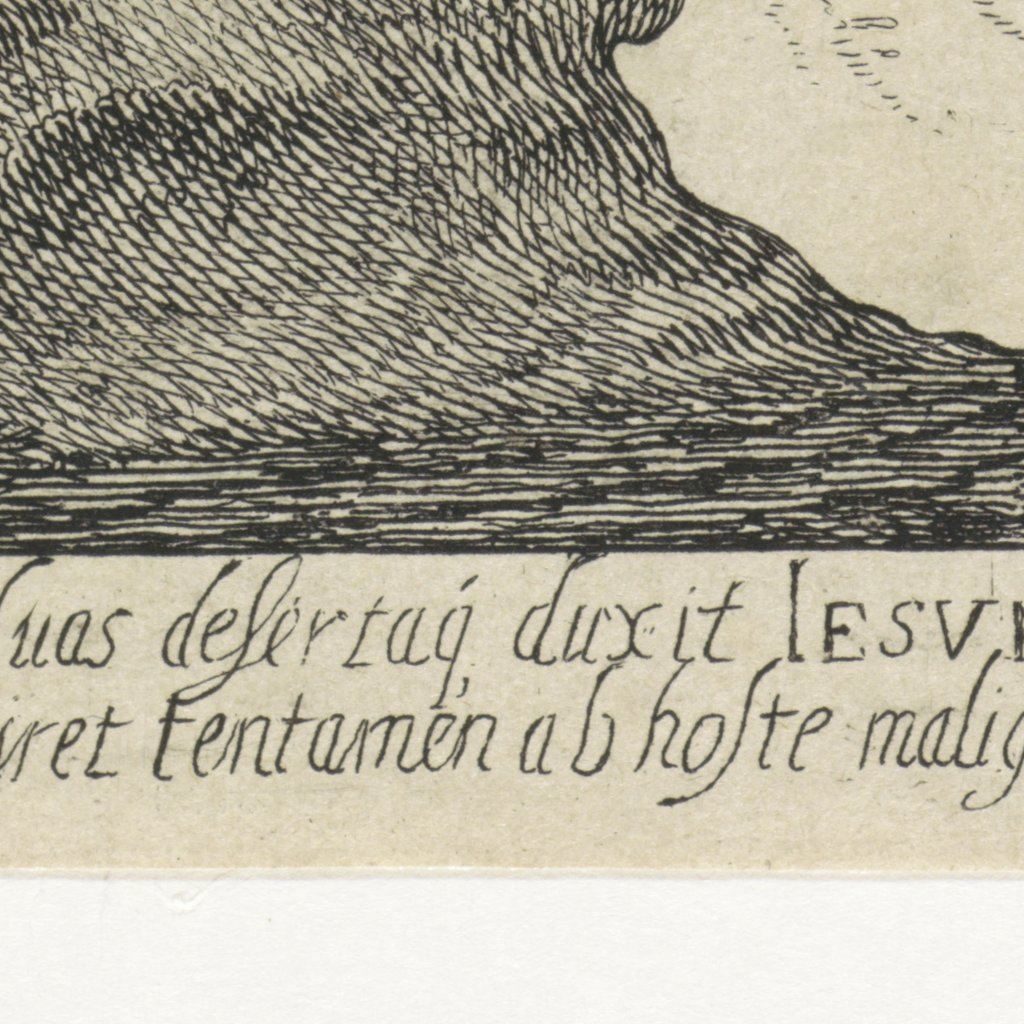 ſuas deſertaq́, duxit IESVM
iret tentamen ab hoſte malig